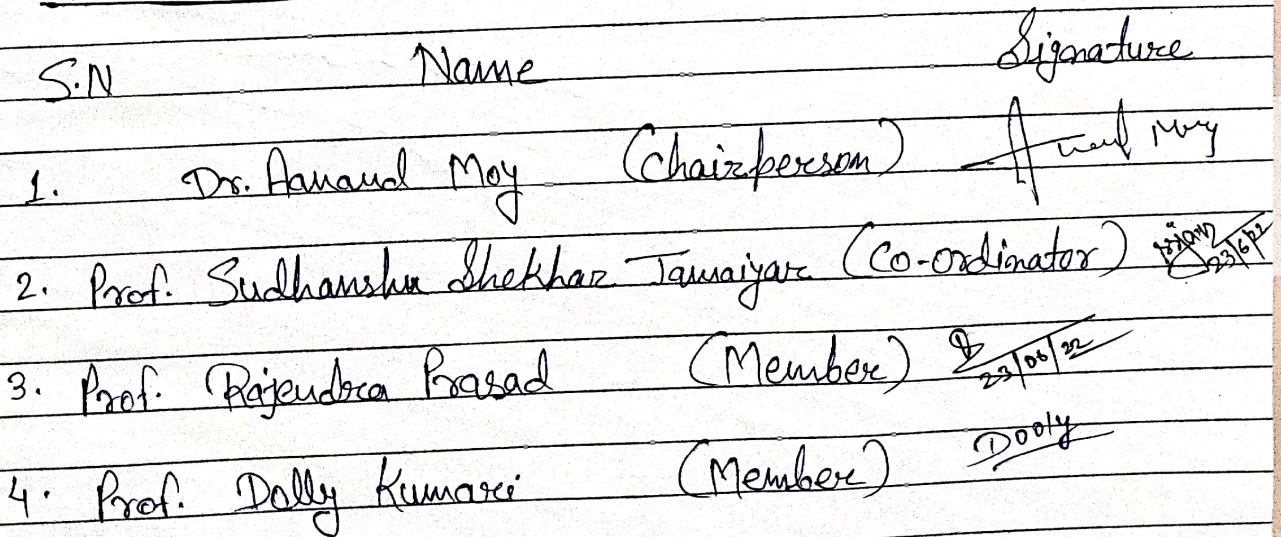 S.N Name Signature
1. Dr. Aanand Moy (Chairperson) Moy
2. Prof. Sudhanshu Shekhar Tamaiyar (Co-ordinator) 23/6/22
3. Prof. Rajendra Prasad (Member) 23/06/22
4. Prof. Dolly Kumari (Member) Dooly